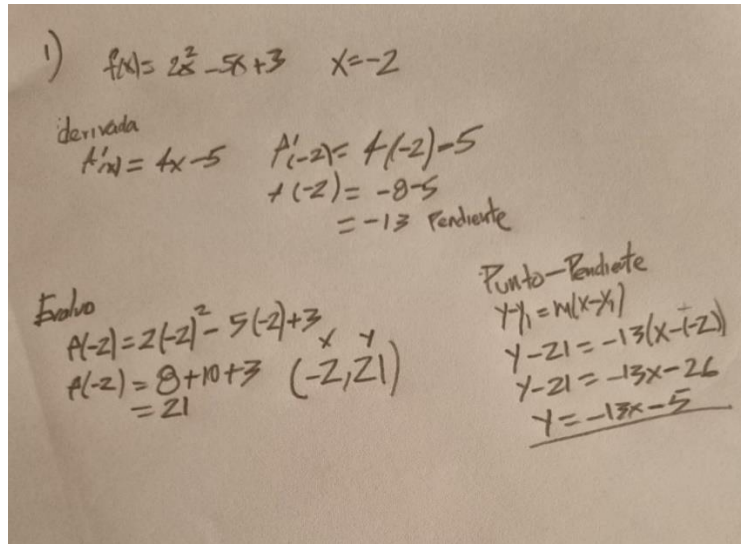 1) f(x) = 2x² - 5x + 3 x = -2
derivada
f'(x) = 4x - 5 f'(-2) = 4(-2) - 5
f(-2) = -8 - 5
= -13 Pendiente
Evaluo
f(-2) = 2(-2)² - 5(-2) + 3
f(-2) = 8 + 10 + 3
= 21
x y
(-2, 21)
Punto - Pendiente
y - y₁ = m(x - x₁)
y - 21 = -13(x - (-2))
y - 21 = -13x - 26
y = -13x - 5